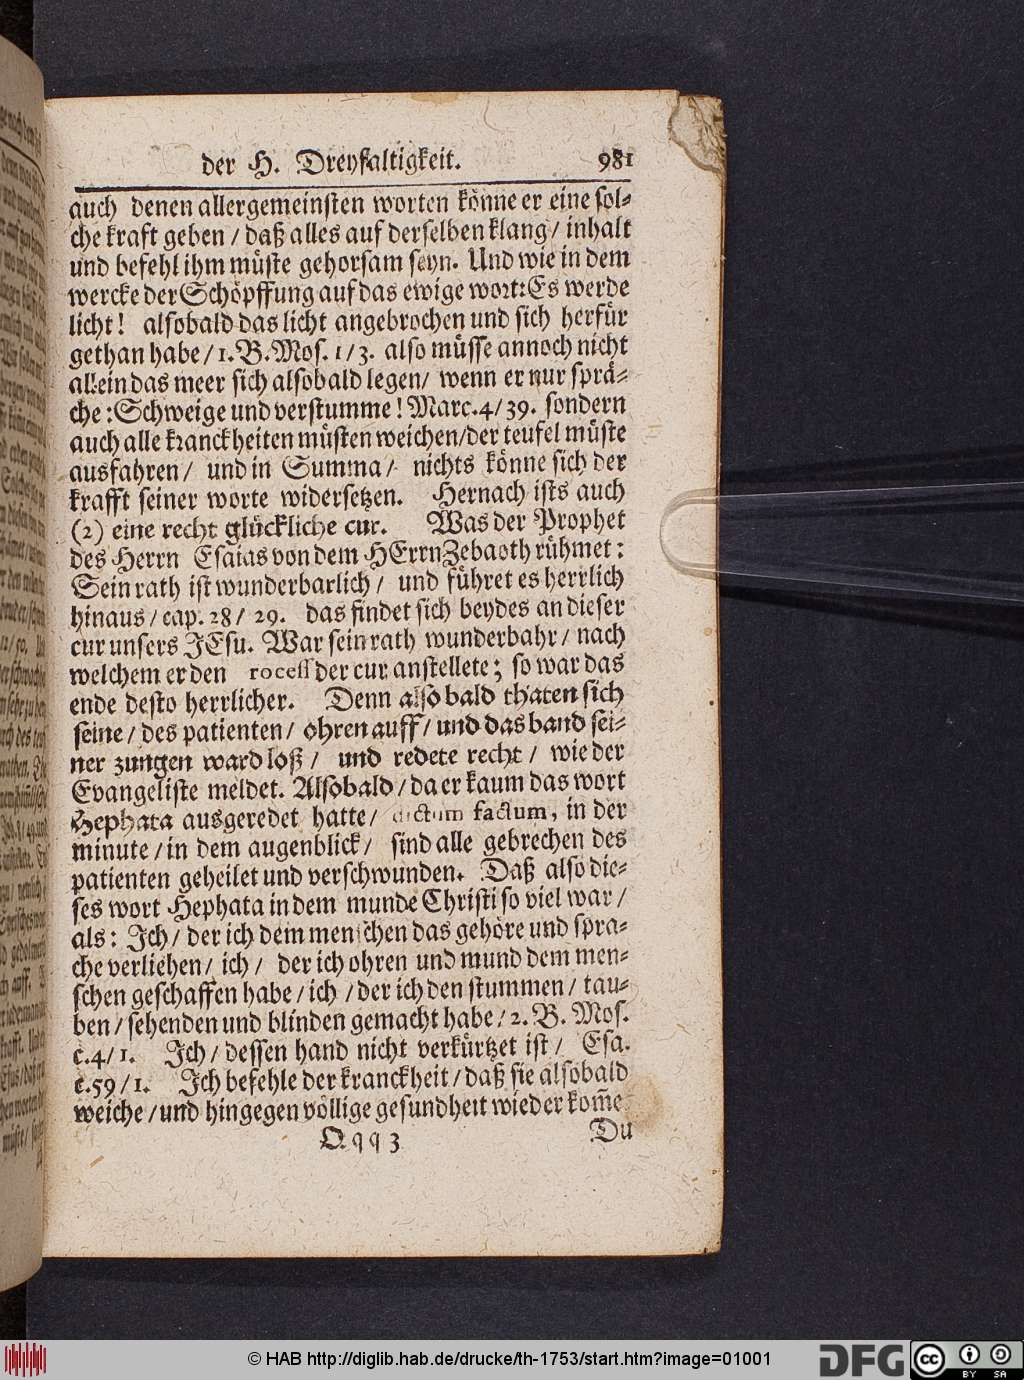 der H. Dreyfaltigkeit. 981
auch denen allergemeinsten worten könne er eine sol-
che kraft geben / daß alles auf derselben klang / inhalt
und befehl ihm müste gehorsam seyn. Und wie in dem
wercke der Schöpffung auf das ewige wort: Es werde
licht! alsobald das licht angebrochen und sich herfür
gethan habe / 1. B. Mos. 1 / 3. also müsse annoch nicht
allein das meer sich alsobald legen / wenn er nur sprä-
che: Schweige und verstumme! Marc. 4 / 39. sondern
auch alle kranckheiten müsten weichen / der teufel müste
ausfahren / und in Summa / nichts könne sich der
krafft seiner worte widersetzen. Hernach ists auch
(2) eine recht glückliche cur. Was der Prophet
des Herrn Esaias von dem HErrn Zebaoth rühmet:
Sein rath ist wunderbarlich / und führet es herrlich
hinaus / cap. 28 / 29. das findet sich beydes an dieser
cur unsers JEsu. War sein rath wunderbahr / nach
welchem er den rocess der cur anstellete; so war das
ende desto herrlicher. Denn also bald thaten sich
seine / des patienten / ohren auff / und das band sei-
ner zungen ward loß / und redete recht / wie der
Evangeliste meldet. Alsobald / da er kaum das wort
Hephata ausgeredet hatte / dictum factum, in der
minute / in dem augenblick / sind alle gebrechen des
patienten geheilet und verschwunden. Daß also die-
ses wort Hephata in dem munde Christi so viel war /
als: Ich / der ich dem menschen das gehöre und spra-
che verliehen / ich / der ich ohren und mund dem men-
schen geschaffen habe / ich / der ich den stummen / tau-
ben / sehenden und blinden gemacht habe / 2. B. Mos.
c. 4 / 1. Ich / dessen hand nicht verkürtzet ist / Esa.
c. 59 / 1. Ich befehle der kranckheit / daß sie alsobald
weiche / und hingegen völlige gesundheit wieder kom̃e
Qqq 3 Du
© HAB http://diglib.hab.de/drucke/th-1753/start.htm?image=01001
DFG cc BY SA